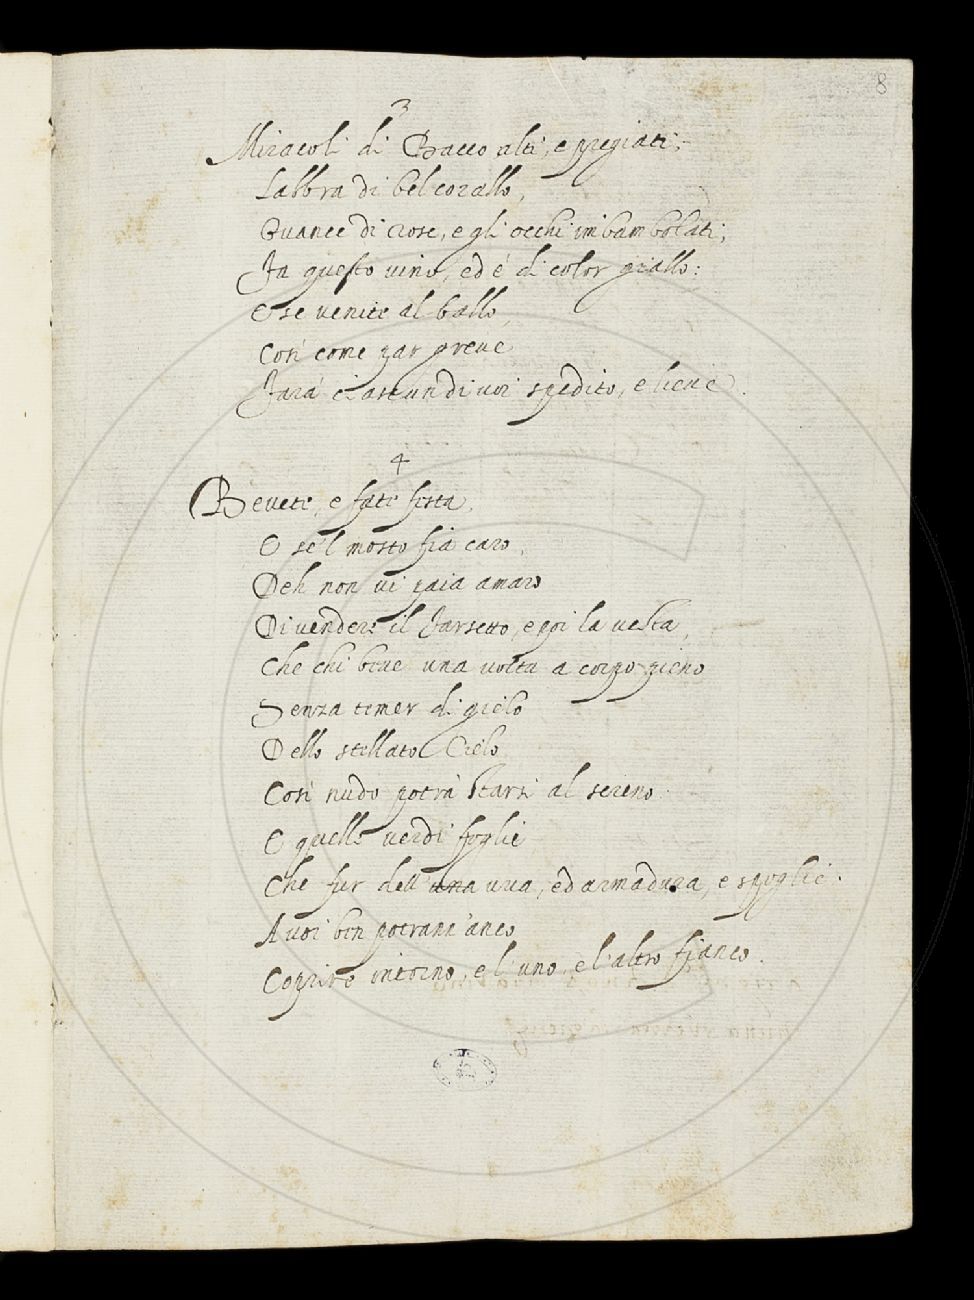 8
3
Miracoli di Bacco alti, e pregiati;
Labbra di bel corallo,
Guance di rose, e gli occhi imbambolati;
In questo vino, ed é di color giallo:
E se venite al ballo,
Così come par greve
Farà ciascun di voi spedito, e lieve.
4
Bevete, e fate festa,
E se'l mosto fia caro,
Deh non vi paia amaro
Di vendere il farsetto, e poi la vesta,
Che chi beve una volta a corpo pieno
Senza temer di gielo
Dello stellato Cielo
Così nudo potrà starsi al sereno.
E quelle verdi foglie
Che fur dell'una uva, ed armadura, e spoglie.
A voi ben potrann'anco
Coprire intorno, e l'uno, e l'altro fianco.